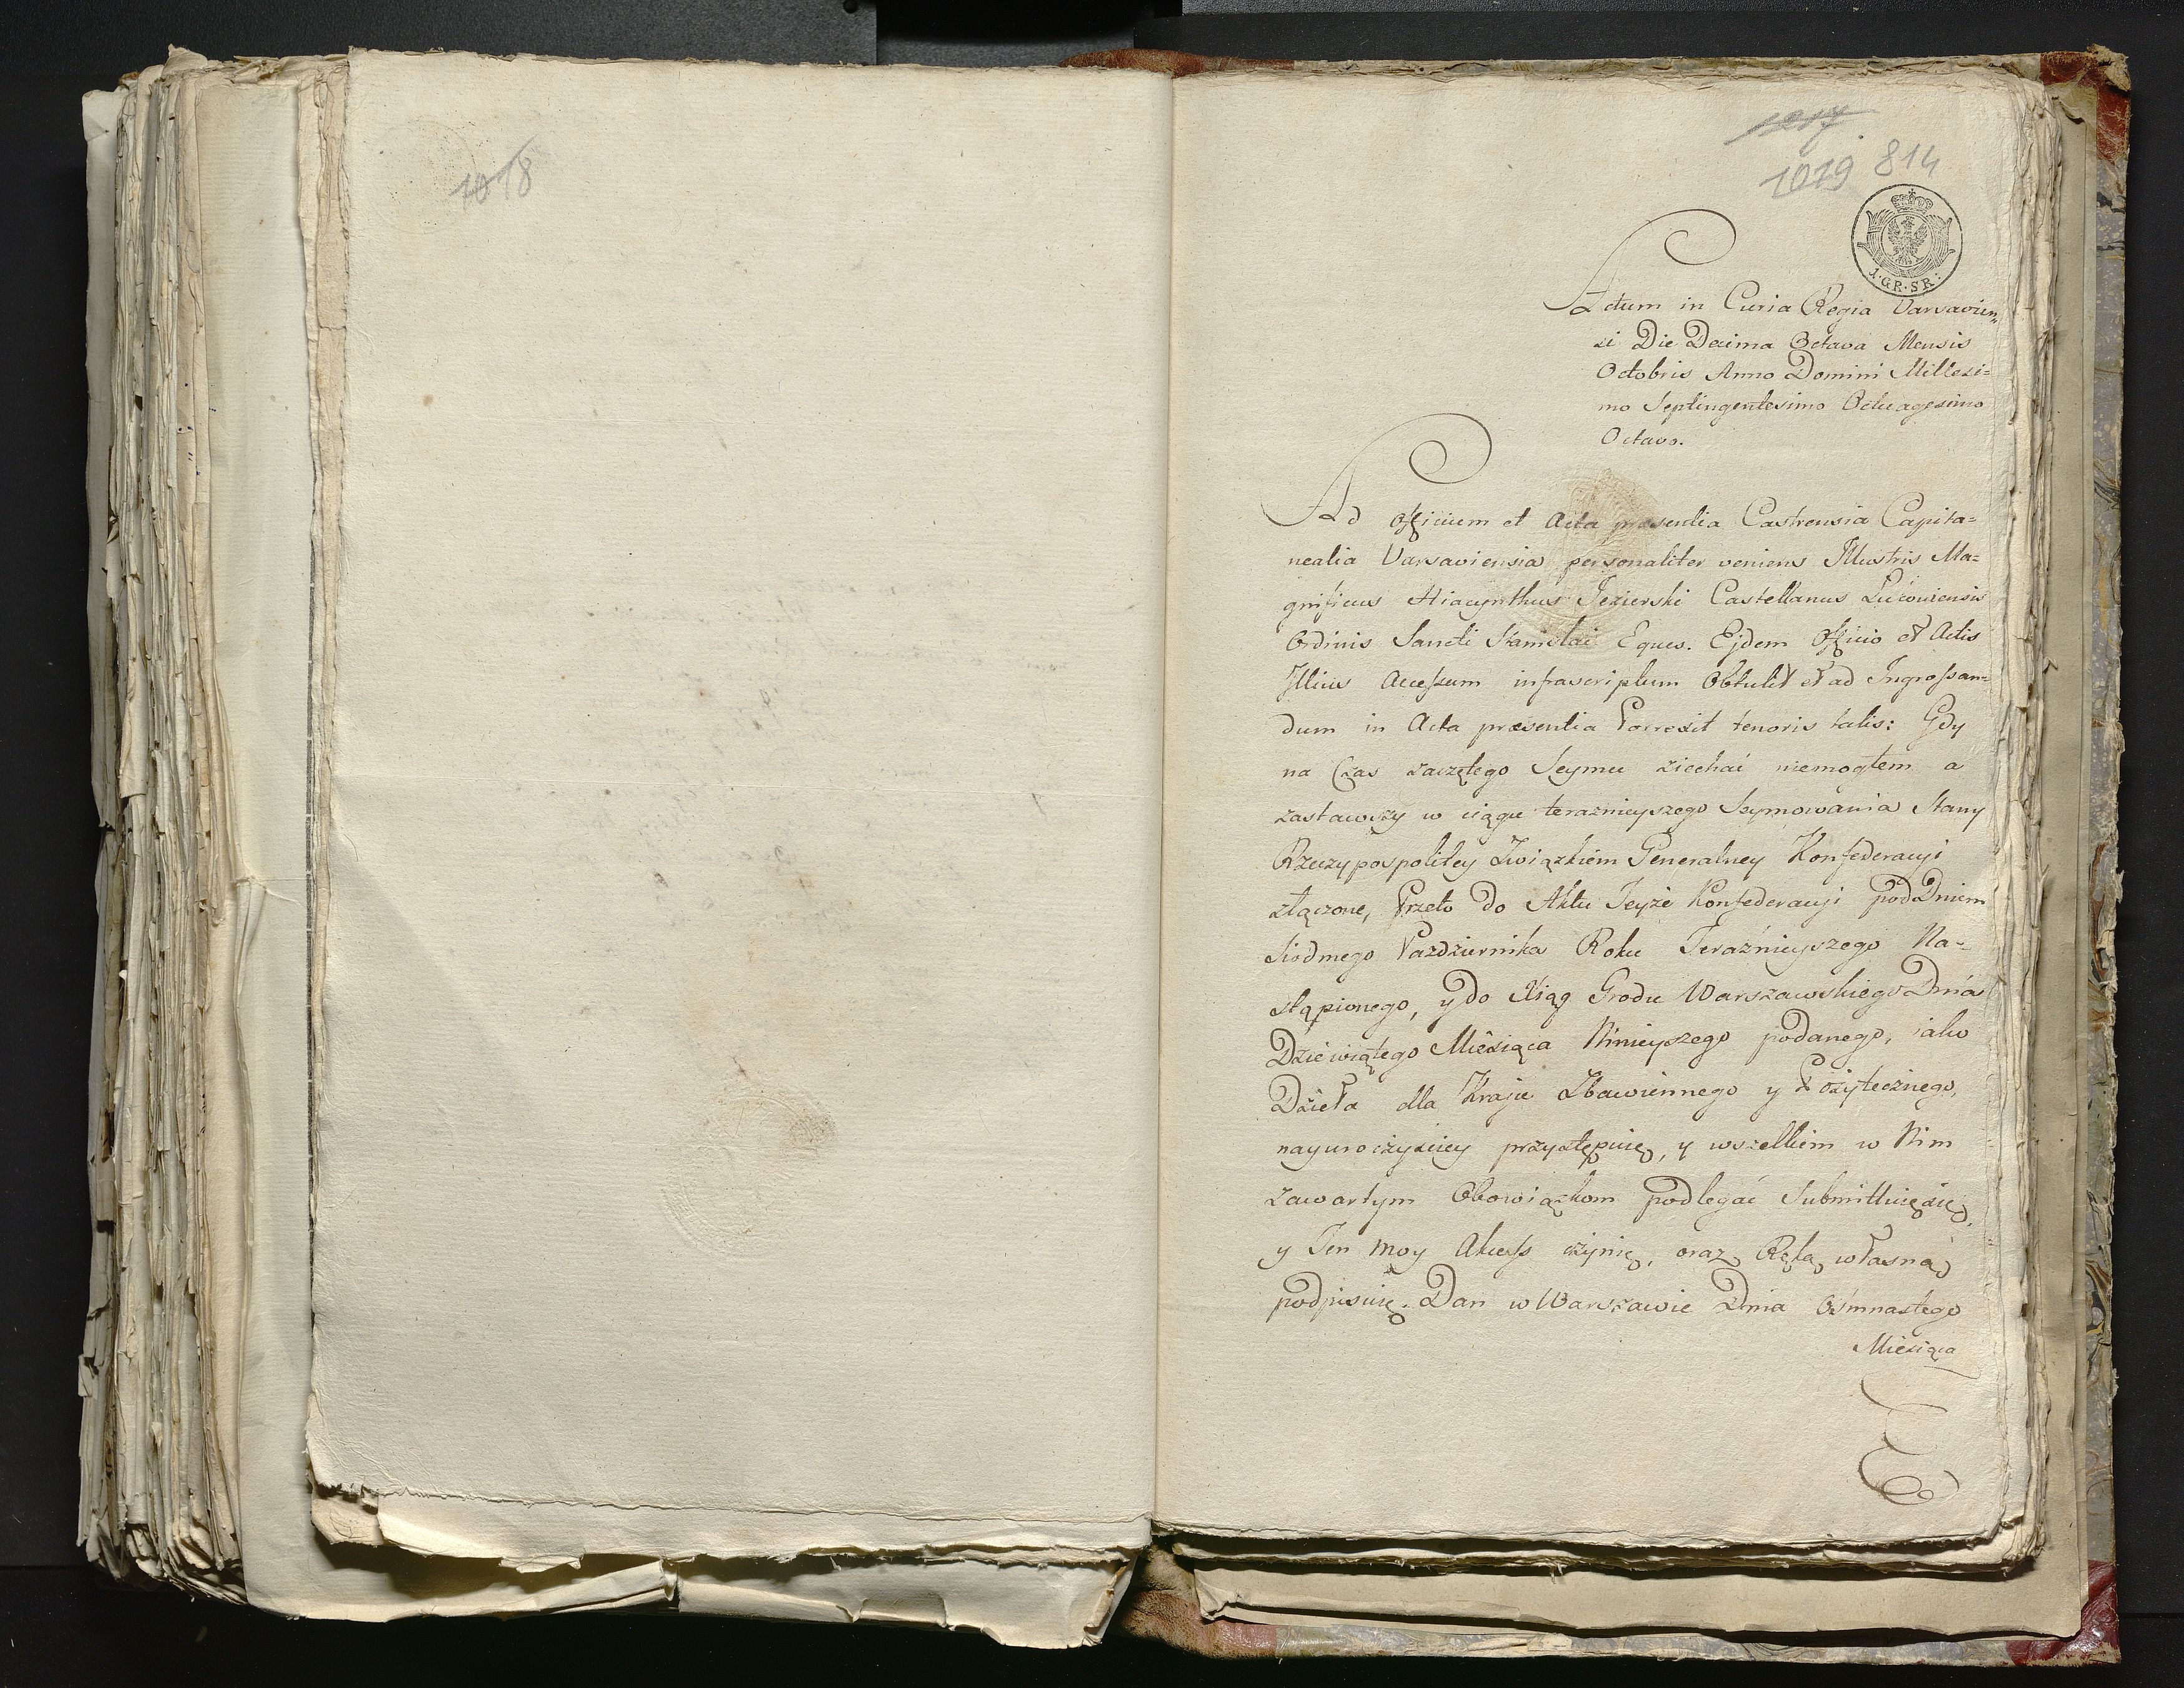 1018
1217
1019 814
1·GR·SR:
Actum in Curia Regia Varsavien„
si Die Decima Octava Mensis
Octobris Anno Domini Millesi=
mo Septingentesimo Octuagesimo
Octavo.
Ad officium et Acta præsentia Castrensia Capita=
nealia Varsaviensia personaliter veniens Illustris Ma=
gnificus Hiacynthus Jezierski Castellanus Łukowiensis
Ordinis Sancti Stanislai Eques. Ejdem Officio et Actis
Illius Accessum infrascriptum Obtulit et ad Ingrossan=
dum in Acta præsentia Porrexit tenoris talis: Gdy
na Czas zaczętego Seymu ziechać niemogłem a
zastawszy w ciągu teraznieyszego Seymowania Stany
Rzeczypospolitey Związkiem Generalney Konfederacyi
złączone, Przeto do Aktu Teyże Konfederacyi pod Dniem
Siódmego Pazdziernika Roku Teraźnieyszego Na=
stąpionego, y do Xiąg Grodu Warszawskiego Dnia
Dziewiątego Miesiąca Ninieyszego podanego, iako
Dzieła dla Kraju Zbawiennego y Pożytecznego,
nayuroczyściey przystępuię, y wszelkiem w Nim
zawartym Obowiązkom podlegać Submittuię się,
y Ten moy Akcess czynię, oraz Ręką własną
podpisuię. Dan w Warszawie Dnia Osmnastego
Miesiąca